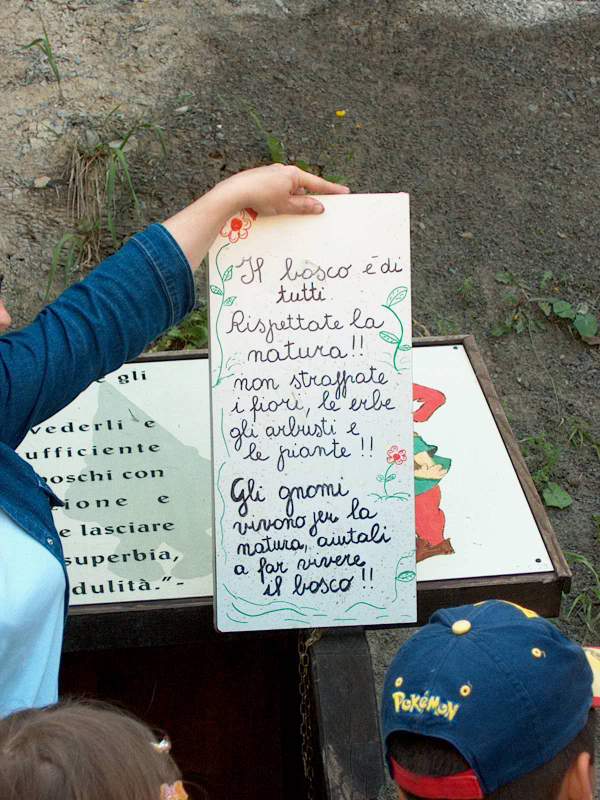 Il bosco è di
tutti
Rispettate la
natura!!
non strappate
i fiori, le erbe
gli arbusti e
le piante!!
Gli gnomi
vivono per la
natura, aiutali
a far vivere
il bosco!!
e gli
vederli e
ufficiente
boschi con
zione e
e lasciare
superbia,
dulità."-
POKéMON